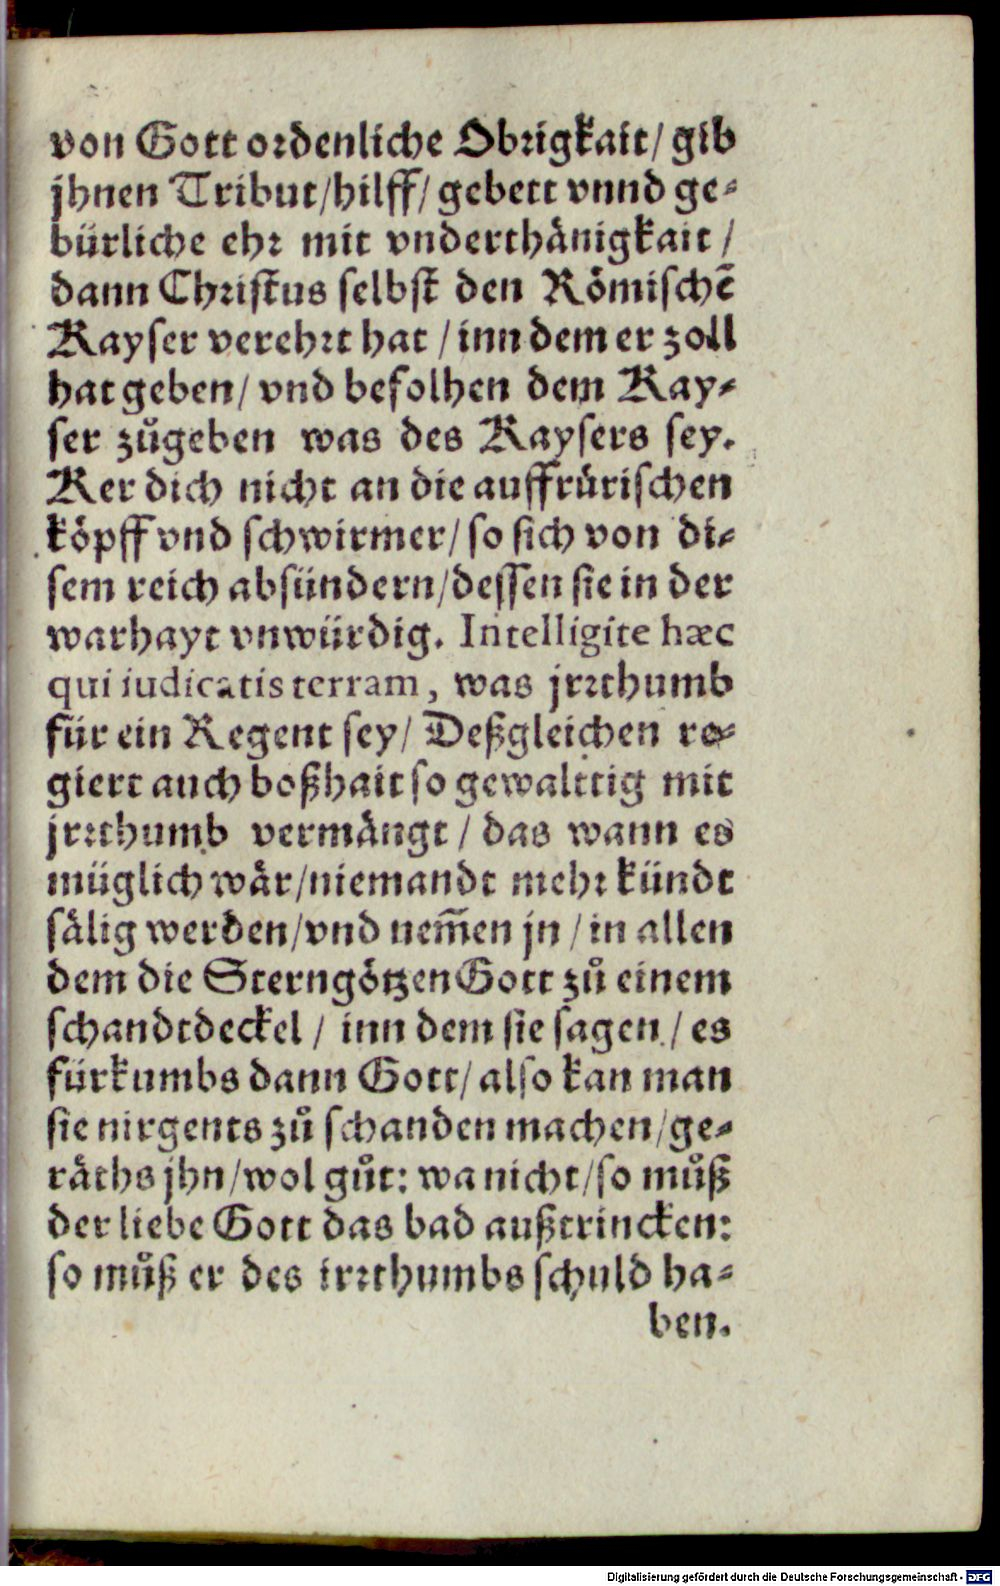 von Gott ordenliche Obrigkait/ gib
jhnen Tribut/hilff/ gebett vnnd ge-
bürliche ehr mit vnderthänigkait /
dann Christus selbst den Römischē
Kayser verehrt hat / inn dem er zoll
hat geben/ vnd befolhen dem Kay-
ser zůgeben was des Kaysers sey.
Ker dich nicht an die auffrürischen
köpff vnd schwirmer/ so sich von di-
sem reich absündern/dessen sie in der
warhayt vnwürdig. Intelligite hæc
qui iudicatis terram, was jrrthumb
für ein Regent sey/ Deßgleichen re-
giert auch boßhait so gewalttig mit
jrrthumb vermängt / das wann es
müglich wär/niemandt mehr kündt
sälig werden/vnd nem̃en jn / in allen
dem die Sterngötzen Gott zů einem
schandtdeckel / inn dem sie sagen / es
fürkumbs dann Gott/ also kan man
sie nirgents zů schanden machen/ge-
räths jhn/wol gůt: wa nicht/so můß
der liebe Gott das bad außtrincken:
so můß er des irrthumbs schuld ha-
ben.
Digitalisierung gefördert durch die Deutsche Forschungsgemeinschaft - DFG